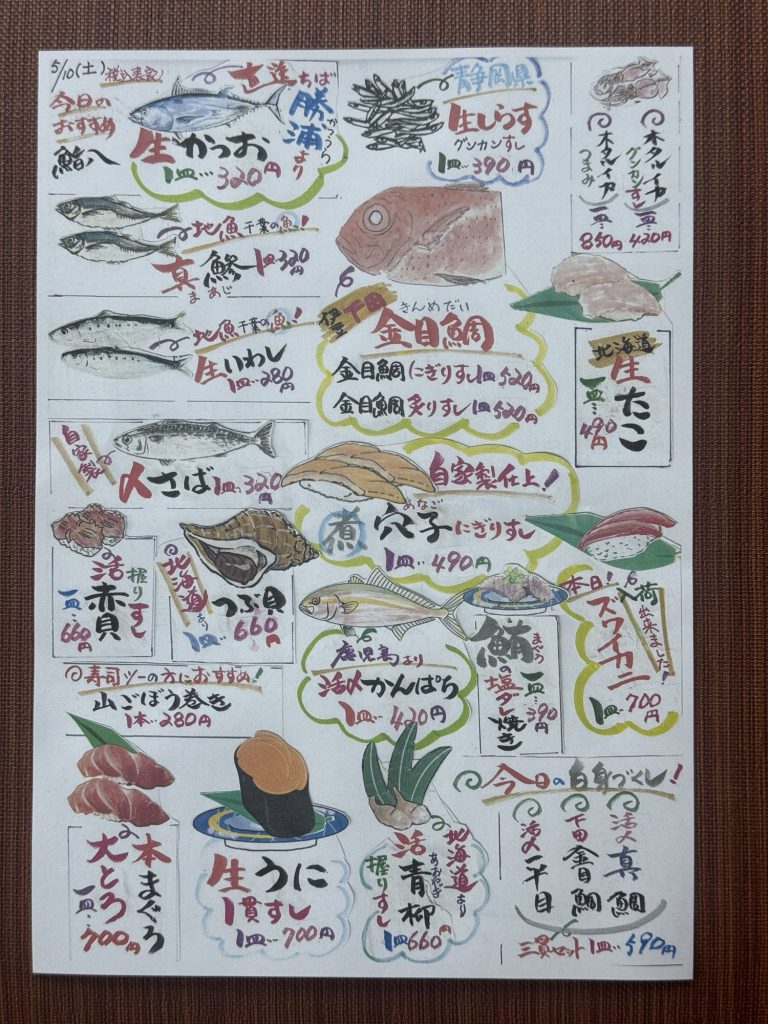 5/10(土) 税込表示
今日の
おすすめ
鮨八
直送 ちば
勝浦より
かつうら
生かつお
1皿…320円
静岡県
生しらす
グンカンすし
1皿…390円
ホタルイカ
グンカンすし
一皿…420円
ホタルイカ
つまみ
一皿…850円
地魚 千葉の魚!
真鯵 1皿320円
まあじ
地魚 千葉の魚!
生いわし
1皿…280円
伊豆下田
きんめだい
金目鯛
金目鯛にぎりすし1皿520円
金目鯛炙りすし1皿520円
北海道
生たこ
一皿…490円
自家製
〆さば1皿…320円
自家製仕上!
あなご
煮穴子にぎりすし
1皿…490円
活赤貝
握りすし
一皿…660円
北海道より
つぶ貝
1皿…660円
鹿児島より
活〆かんぱち
1皿…420円
まぐろ
鮪の塩ダレ焼き
一皿…390円
本日!
入荷出来ました!
ズワイカニ
1皿…700円
寿司ツーの方におすすめ!
山ごぼう巻き
1本…280円
本まぐろ
大とろ
一皿…700円
生うに
1貫すし
1皿…700円
北海道より
活青柳
あおやぎ
握りすし
1皿660円
今日の白身づくし!
活〆真鯛
下田金目鯛
活〆平目
三貫セット1皿…590円